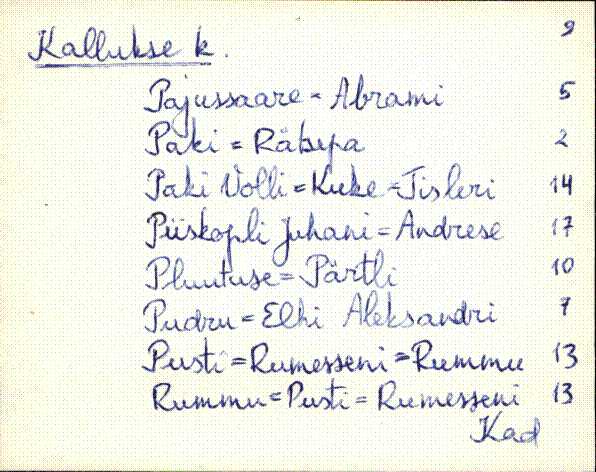 9
Kallukse k.
Pajussaare = Abrami 5
Paki = Räbepa 2
Paki Volli = Kuke = Tisleri 14
Piiskopli Juhani = Andrese 17
Pluutuse = Pärtli 10
Pudru = Elhi Aleksandri 7
Pusti = Rumesseni = Rummu 13
Rummu = Pusti = Rumesseni 13
Kad